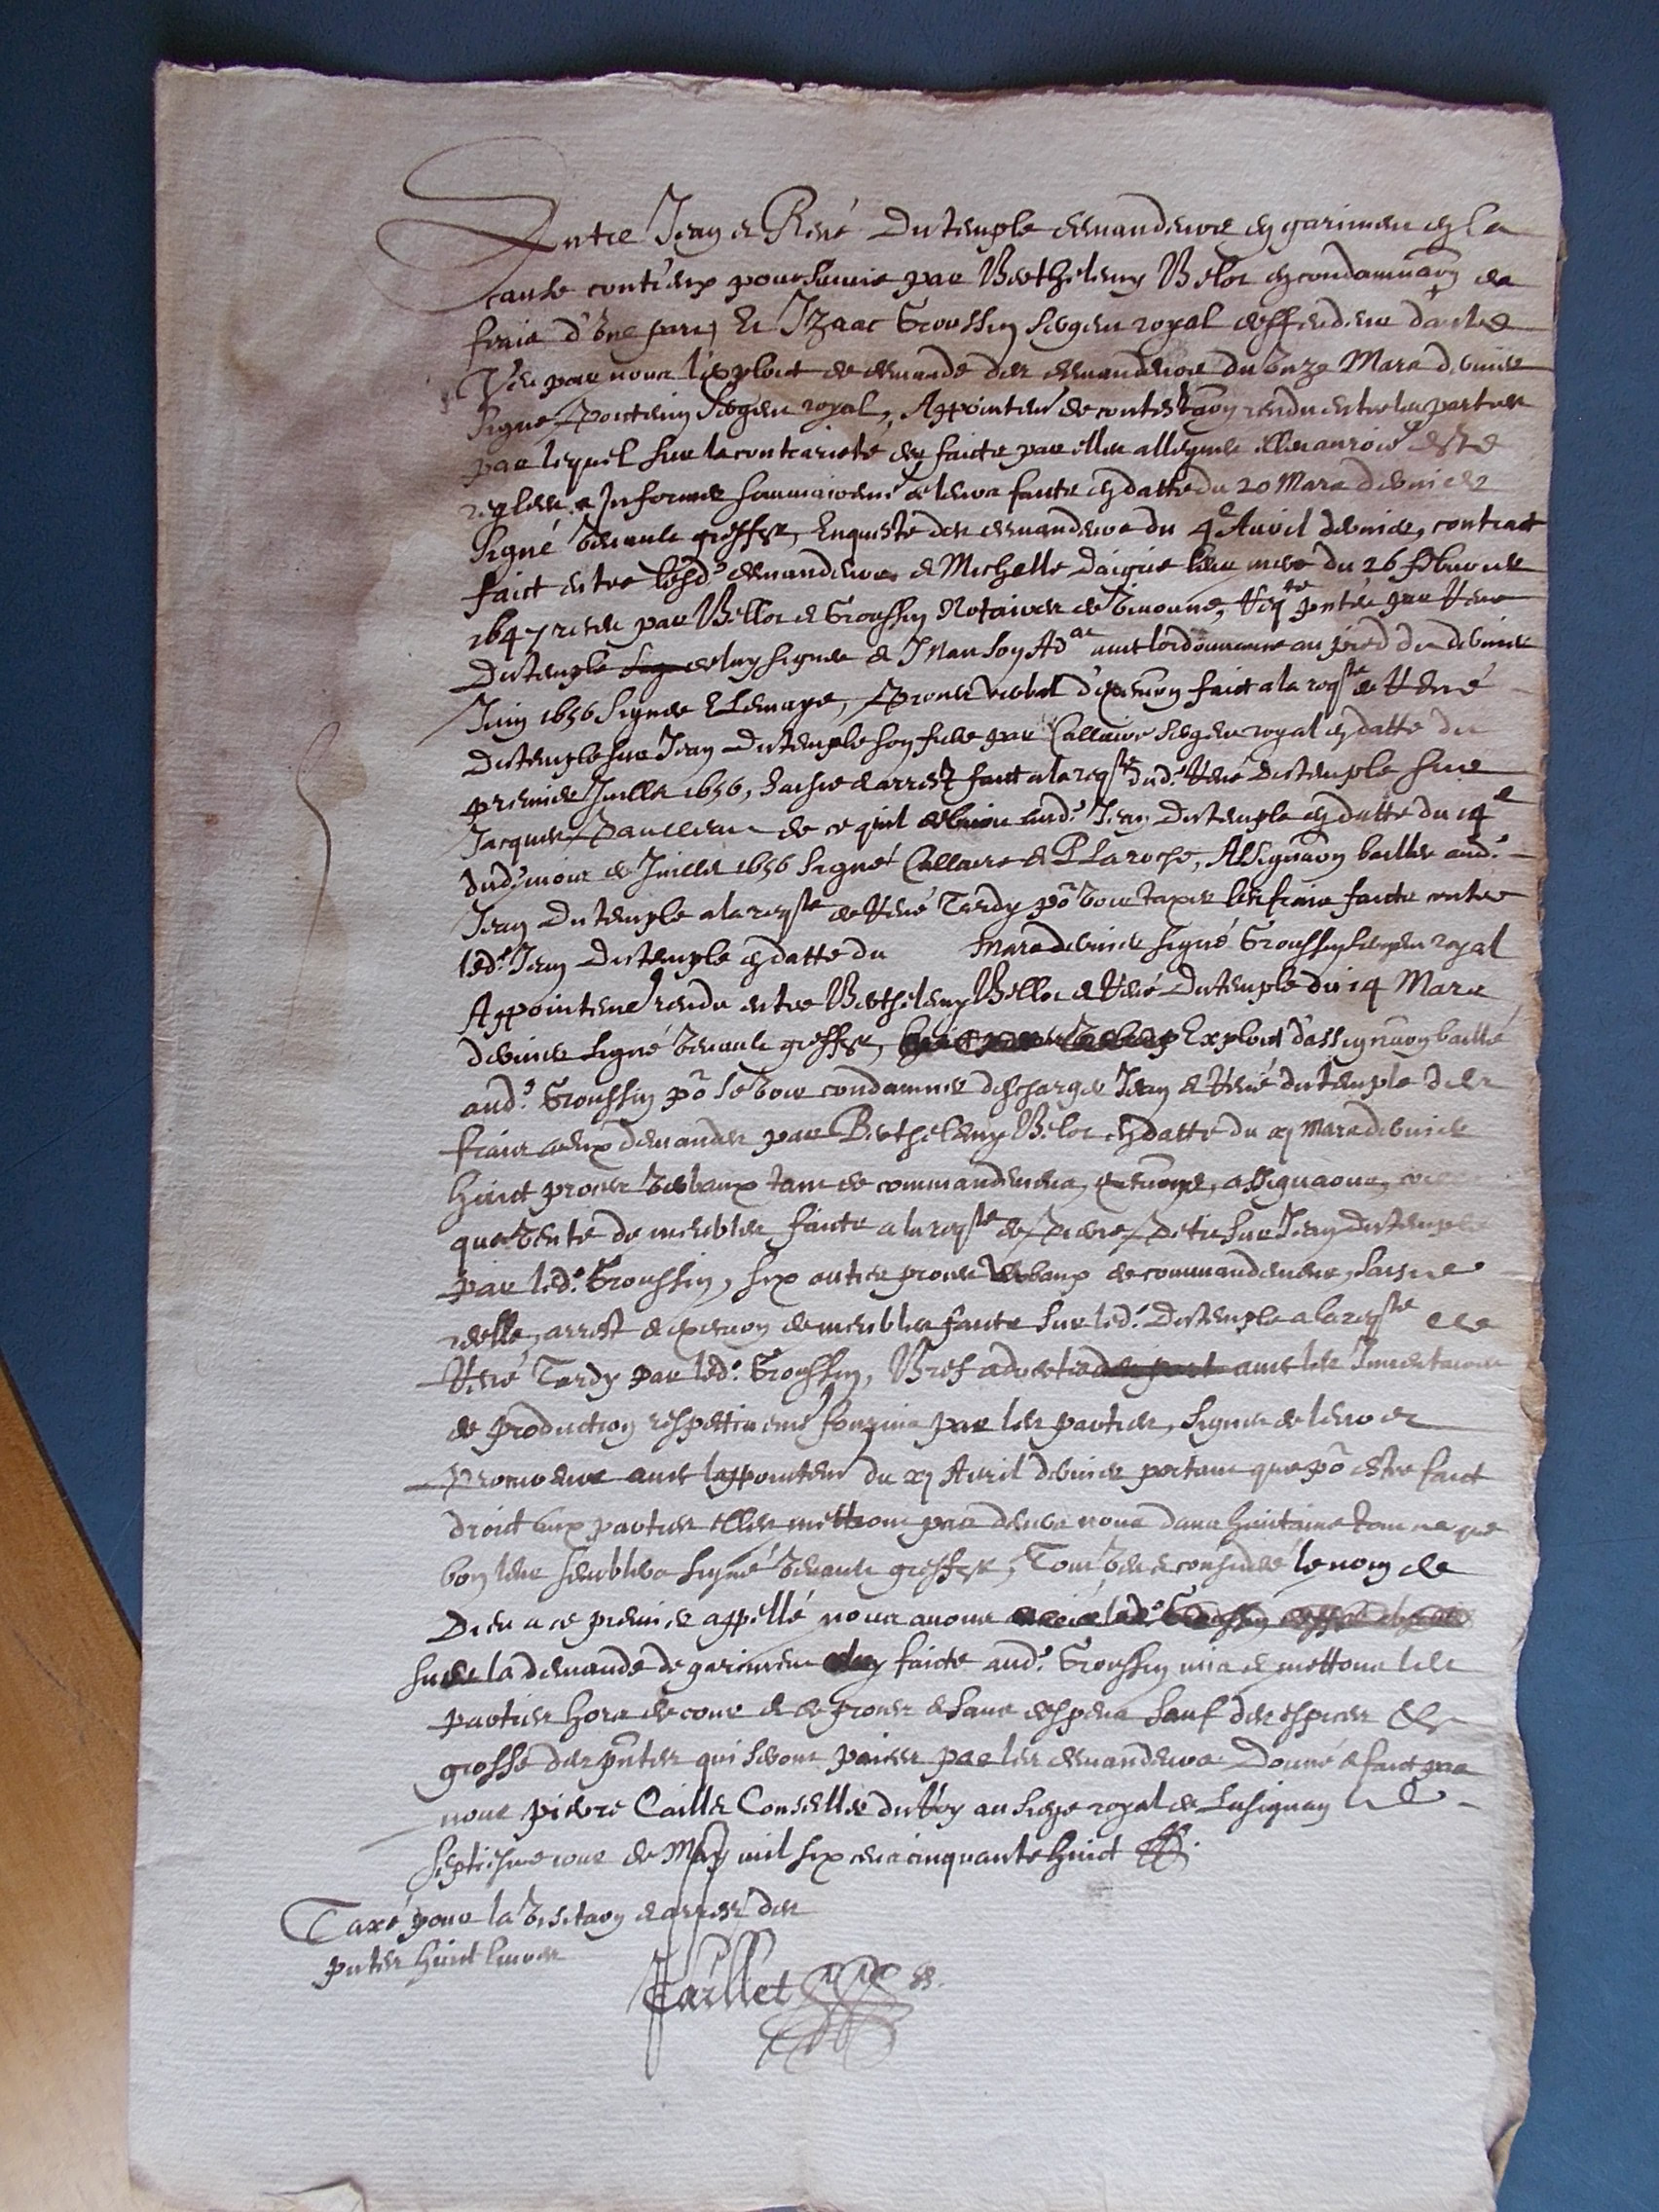 Entre Jean et René Dutemple demandeurs en garimen en la
cause contr'eux poursuivie par Berthelemy Belot en condamnaōn de
frais d'une part, Et Izaac Groussin sergen royal deffendeur d'autre
Veu par nous l'exploict de demande des demandeurs du unze Mars dernier
signé Poictevin sergen royal, Appointem' de contestaōn rendu entre les parties
par lequel sur la contrarieté des faicts par elles allegués elles auroie' esté
reglees a Informer sommairem' de leurs faicts en datte du 20 Mars dernier
signé greffier, Enqueste des demandeurs du 4e Auril dernier, contract
faict entre lesd' demandeurs et Michelle Daigne leur mere du 26 febvrier
1647 receu par Bellot et Groussin Notaires de Viuonne, Req'te p'ntée par René
Dutemple de luy signee et Ad'at auec lordonnance au pied du dernier
Juin 1656 signee Lemaye, Proces verbal d'exe'on faict a la reqste de René
Dutemple sur Jean Dutemple son frere par Callaire sergen royal en datte du
premier Juillet 1656, saisie et arrest faict a la reqste dud' René Dutemple sur
Jacques de ce quil debuoit aud' Jean Dutemple en datte du 14e
dud' mois de Juillet 1656 signé Callaire et P Laroche, Assignaōn baillee aud'
Jean Dutemple a la reqste de René Tardy pō voir taxer les frais faicts contre
led' Jean Dutemple en datte du Mars dernier signé Groussin sergen royal
Appointem' rendu entre Berthelemy Bellot et René Dutemple du 14 Mars
dernier signé greffier, Exploict d'assignaōn baillé
aud' Groussin pō se voir condamner descharger Jean et René dutemple des
frais a eux demandés par Berthelemy Belot en datte du xj Mars dernier
huict proces verbaux tant de commandemens, exe'ons, assignaons,
que vente de meubles faicte a la reqste de Pierre Petit sur Jean Dutemple
par led' Groussin, six autres proces verbaux de commandemens, saisie
reelle, arrest et exe'on de meubles faicts sur led' Dutemple a la reqste de
René Tardy par led' Groussin, Bref aduertis auec les Inuentaires
de production respectivem' fournis par les parties, signees de leurs
procureurs auec lappointem' du xj Auril dernier portant que pō estre faict
droict aux parties elles mettront par deuers nous dans huictaine tout ce que
bon leur semblera signé greffier, Tout veu et consideré le nom de
Dieu a ce premier appellé nous auons
sur la demande de garimen faicte aud' Groussin mis et mettons les
parties hors de cour et de proces et sans despens sauf des espices et
grosse des p'ntes qui seront paiees par les demandeurs. Donné et faict par
nous Pierre Caillet Conseiller du Roy au siege royal de Lusignan le
septiesme iour de May mil six cens cinquante huict
Taxé pour la visitaōn et arresté des
p'ntes huict liures
Caillet